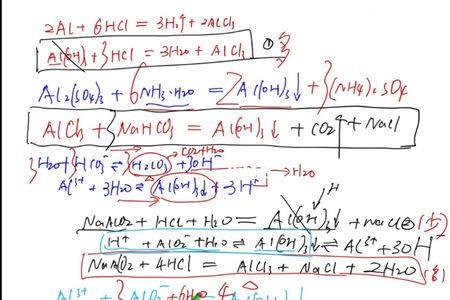 2Al + 6HCl = 3H₂↑ + 2AlCl₃
Al(OH)₃ + 3HCl = 3H₂O + AlCl₃ ① 多
Al₂(SO₄)₃ + 6NH₃·H₂O = 2Al(OH)₃↓ + 3(NH₄)₂SO₄
AlCl₃ + 3NaHCO₃ = Al(OH)₃↓ + CO₂↑ + NaCl
CO₂+H₂O
3H₂O + 3HCO₃⁻ ⇌ 3H₂CO₃ + 3OH⁻
→ H₂O
Al³⁺ + 3H₂O ⇌ Al(OH)₃↓ + 3H⁺
H
NaAlO₂ + HCl + H₂O = Al(OH)₃↓ + NaCl ② (少)
H⁺ + AlO₂⁻ + H₂O ⇌ Al(OH)₃↓ ⇌ Al³⁺ + 3OH⁻
NaAlO₂ + 4HCl = AlCl₃ + NaCl + 2H₂O (多)
Al³⁺ + 3AlO₂⁻ + 6H₂O 4